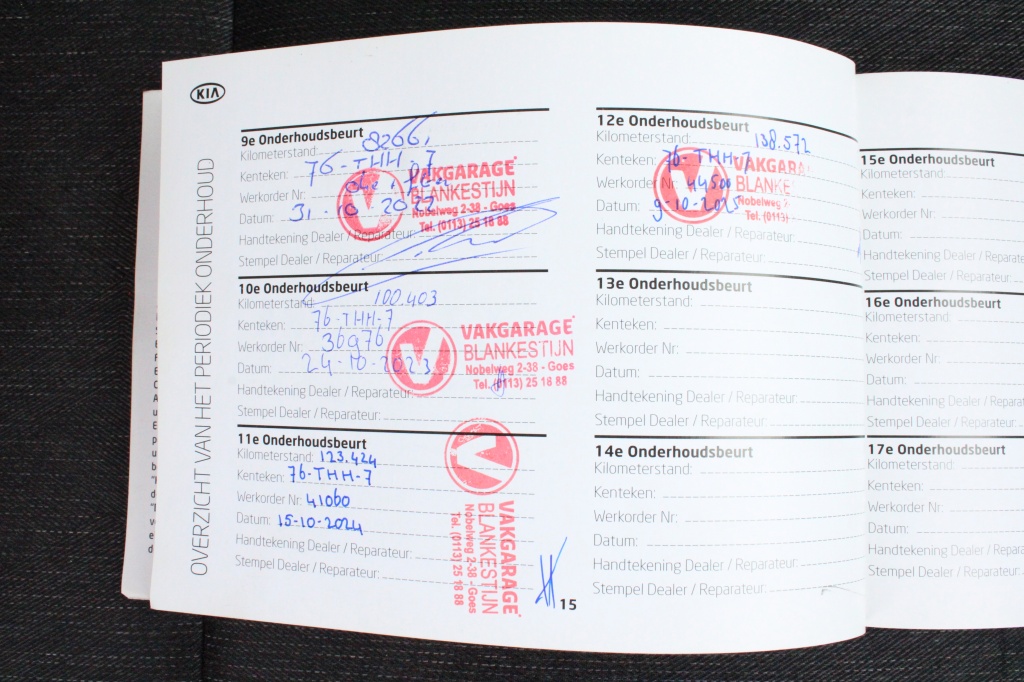 KIA
OVERZICHT VAN HET PERIODIEK ONDERHOUD
9e Onderhoudsbeurt
Kilometerstand:
Kenteken: 76-THH-7
Werkorder Nr:
Datum: 31-10 2022
Handtekening Dealer / Reparateur:
Stempel Dealer / Reparateur:
VAKGARAGE
BLANKESTIJN
Nobelweg 2-38 - Goes
Tel. (0113) 25 18 88
10e Onderhoudsbeurt
Kilometerstand: 100.403
Kenteken: 76-THH-7
Werkorder Nr: 36976
Datum: 24-10-2023
Handtekening Dealer / Reparateur:
Stempel Dealer / Reparateur:
VAKGARAGE
BLANKESTIJN
Nobelweg 2-38 - Goes
Tel. (0113) 25 18 88
11e Onderhoudsbeurt
Kilometerstand: 123.424
Kenteken: 76-THH-7
Werkorder Nr: 41060
Datum: 15-10-2024
Handtekening Dealer / Reparateur:
Stempel Dealer / Reparateur:
VAKGARAGE
BLANKESTIJN
Nobelweg 2-38 - Goes
Tel. (0113) 25 18 88
15
12e Onderhoudsbeurt
Kilometerstand: 138.572
Kenteken: 76-THH-7
Werkorder Nr: 44500
Datum: 9-10-2025
Handtekening Dealer / Reparateur:
Stempel Dealer / Reparateur:
VAKGARA
BLANKE
Nobelweg 2-3
Tel. (0113)
13e Onderhoudsbeurt
Kilometerstand:
Kenteken:
Werkorder Nr:
Datum:
Handtekening Dealer / Reparateur:
Stempel Dealer / Reparateur:
14e Onderhoudsbeurt
Kilometerstand:
Kenteken:
Werkorder Nr:
Datum:
Handtekening Dealer / Reparateur:
Stempel Dealer / Reparateur:
15e Onderhoudsbeurt
Kilometerstand:
Kenteken:
Werkorder Nr:
Datum:
Handtekening Dealer / Reparate
Stempel Dealer / Reparateur:
16e Onderhoudsbeurt
Kilometerstand:
Kenteken:
Werkorder Nr:
Datum:
Handtekening Dealer / Reparat
Stempel Dealer / Reparateur:
17e Onderhoudsbeurt
Kilometerstand:
Kenteken:
Werkorder Nr:
Datum:
Handtekening Dealer / Repara
Stempel Dealer / Reparateur: